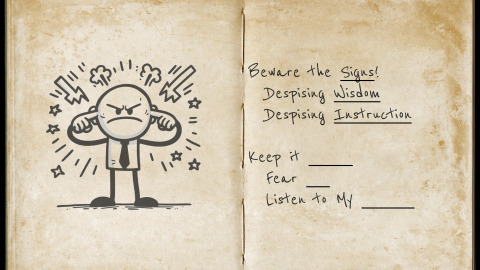 Beware the Signs!
Despising Wisdom
Despising Instruction
Keep it ______
Fear ___
Listen to My _______